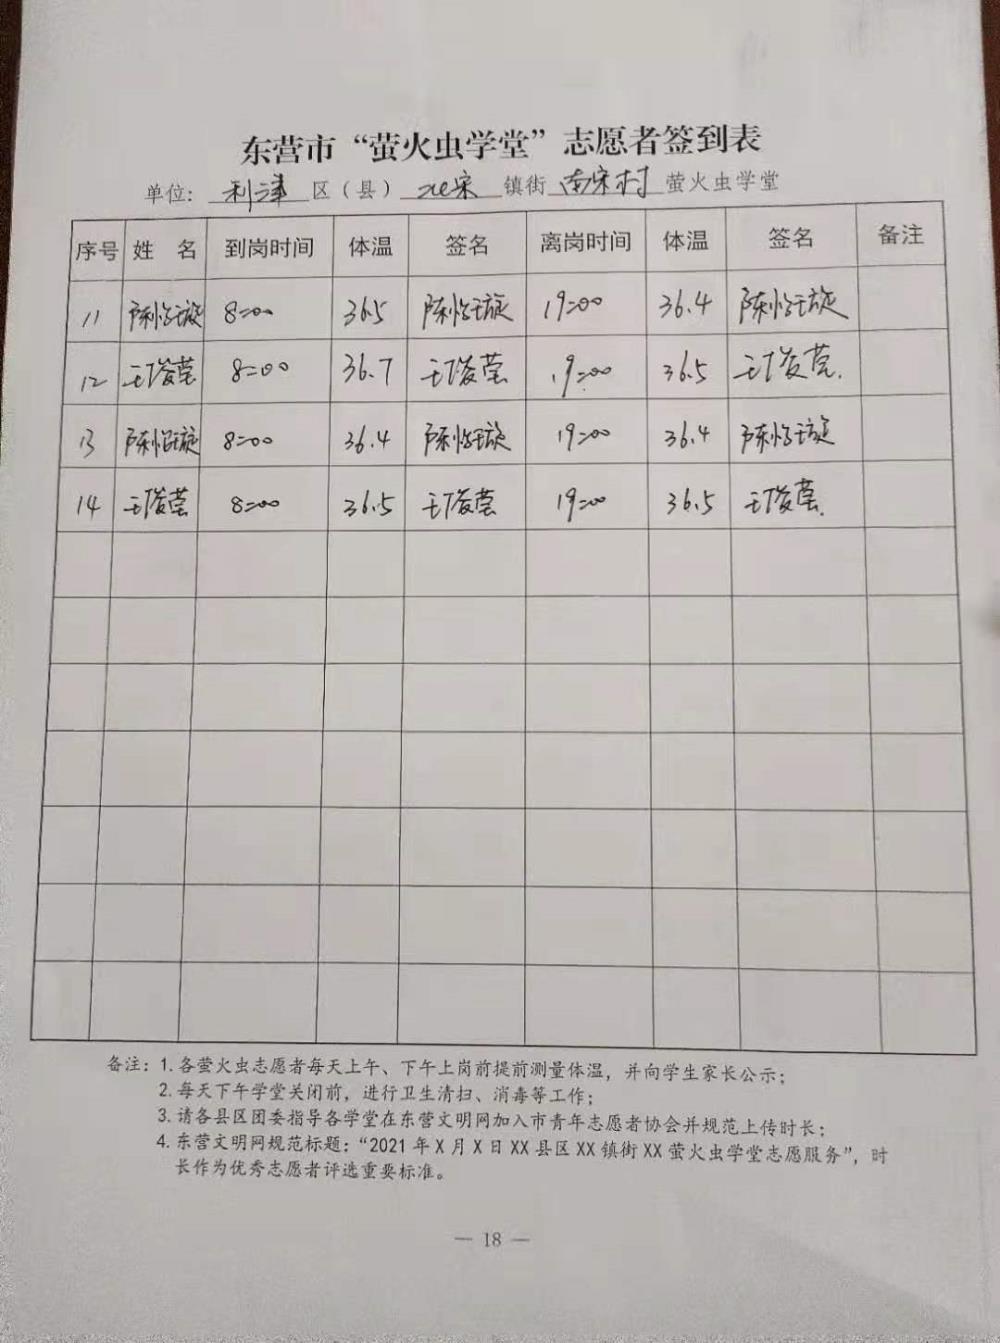 东营市“萤火虫学堂”志愿者签到表
单位: 利津 区（县） 北宋 镇街 南宋村 萤火虫学堂
序号 姓 名 到岗时间 体温 签名 离岗时间 体温 签名 备注
11 陈怡璇 8:00 36.5 陈怡璇 19:00 36.4 陈怡璇
12 王俊莹 8:00 36.7 王俊莹 19:00 36.5 王俊莹.
13 陈怡璇 8:00 36.4 陈怡璇 19:00 36.4 陈怡璇
14 王俊莹 8:00 36.5 王俊莹 19:00 36.5 王俊莹.
备注：1. 各萤火虫志愿者每天上午、下午上岗前提前测量体温，并向学生家长公示；
2. 每天下午学堂关闭前，进行卫生清扫、消毒等工作；
3. 请各县区团委指导各学堂在东营文明网加入市青年志愿者协会并规范上传时长；
4. 东营文明网规范标题：“2021 年 X 月 X 日 XX 县区 XX 镇街 XX 萤火虫学堂志愿服务”，时
长作为优秀志愿者评选重要标准。
— 18 —